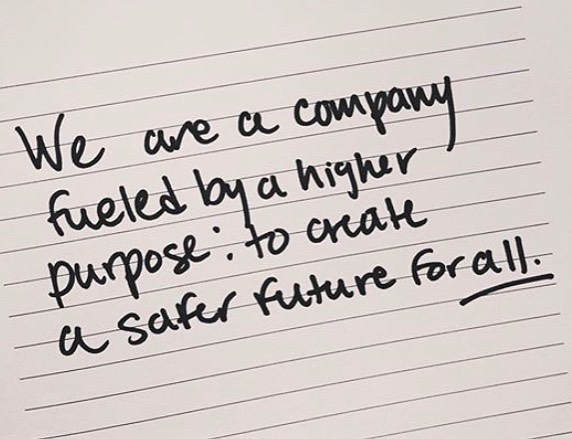 We are a company
fueled by a higher
purpose: to create
a safer future for all.